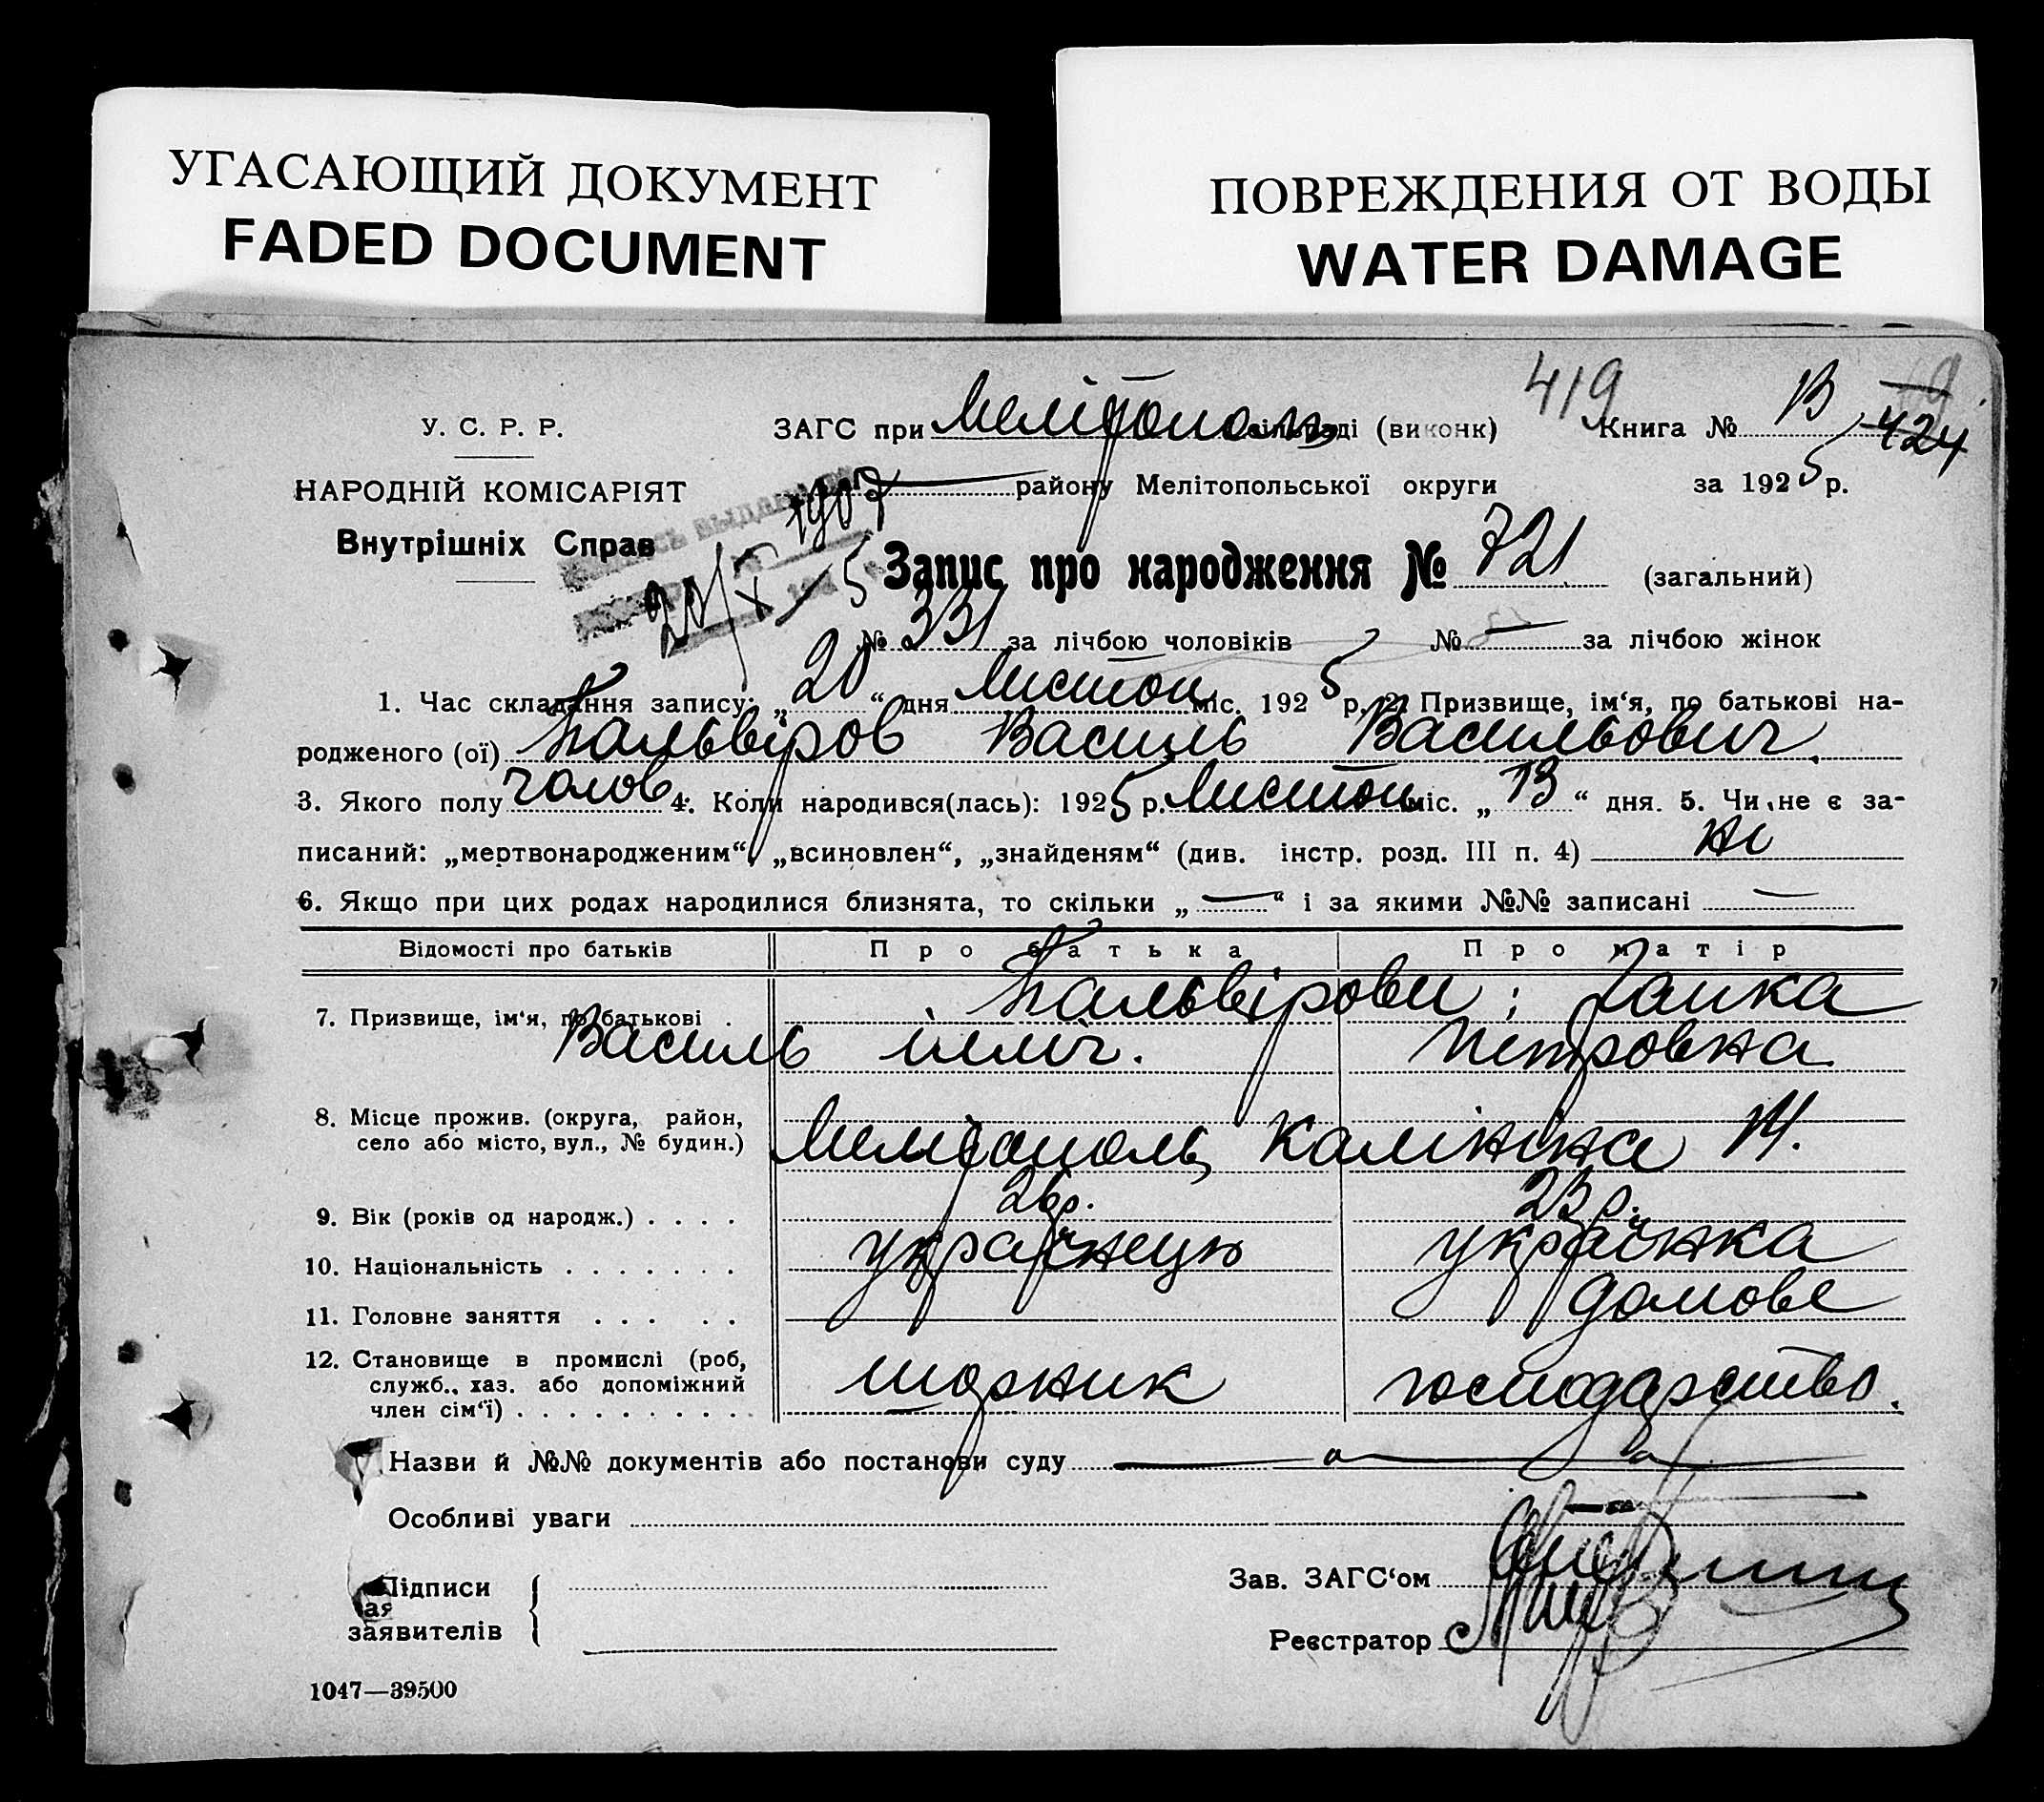 УГАСАЮЩИЙ ДОКУМЕНТ
FADED DOCUMENT
ПОВРЕЖДЕНИЯ ОТ ВОДЫ
WATER DAMAGE
419
У. С. Р. Р.
ЗАГС при Мелітополь сільраді (виконк) Книга № В 424
НАРОДНІЙ КОМІСАРІЯТ
Внутрішніх Справ
1907
району Мелітопольської округи за 1925 р.
Запис про народження № 721 (загальний)
№ 331 за лічбою чоловіків № — за лічбою жінок
1. Час складання запису: „20“ дня Листоп міс. 1925 р. 2. Призвище, ім‘я, по батькові на-
родженого (ої) Бальвіров Василь Васильович
3. Якого полу чолов 4. Коли народився(лась): 1925 р. Листоп міс. „13“ дня. 5. Чи не є за-
писаний: „мертвонародженим“, „всиновлен“, „знайденям“ (див. інстр. розд. III п. 4) ні
6. Якщо при цих родах народилися близнята, то скільки „—“ і за якими №№ записані —
Відомості про батьків Про батька Про матір
7. Призвище, ім‘я, по батькові . Бальвірови: Ганка
Василь Ілліч. Петровна
8. Місце прожив. (округа, район,
село або місто, вул., № будин.) Мелітополь, Калініна 14.
9. Вік (років од народж.) . . . . 26 р. 23 р.
10. Національність . . . . . . . українець українка
11. Головне заняття . . . . . домове
12. Становище в промислі (роб,
служб., хаз. або допоміжний
член сім‘ї) . . . . . . . . . . шорник господарство.
Назви й №№ документів або постанови суду —
Особливі уваги
Підписи
заявителів
Зав. ЗАГС‘ом
Реєстратор
1047—39500